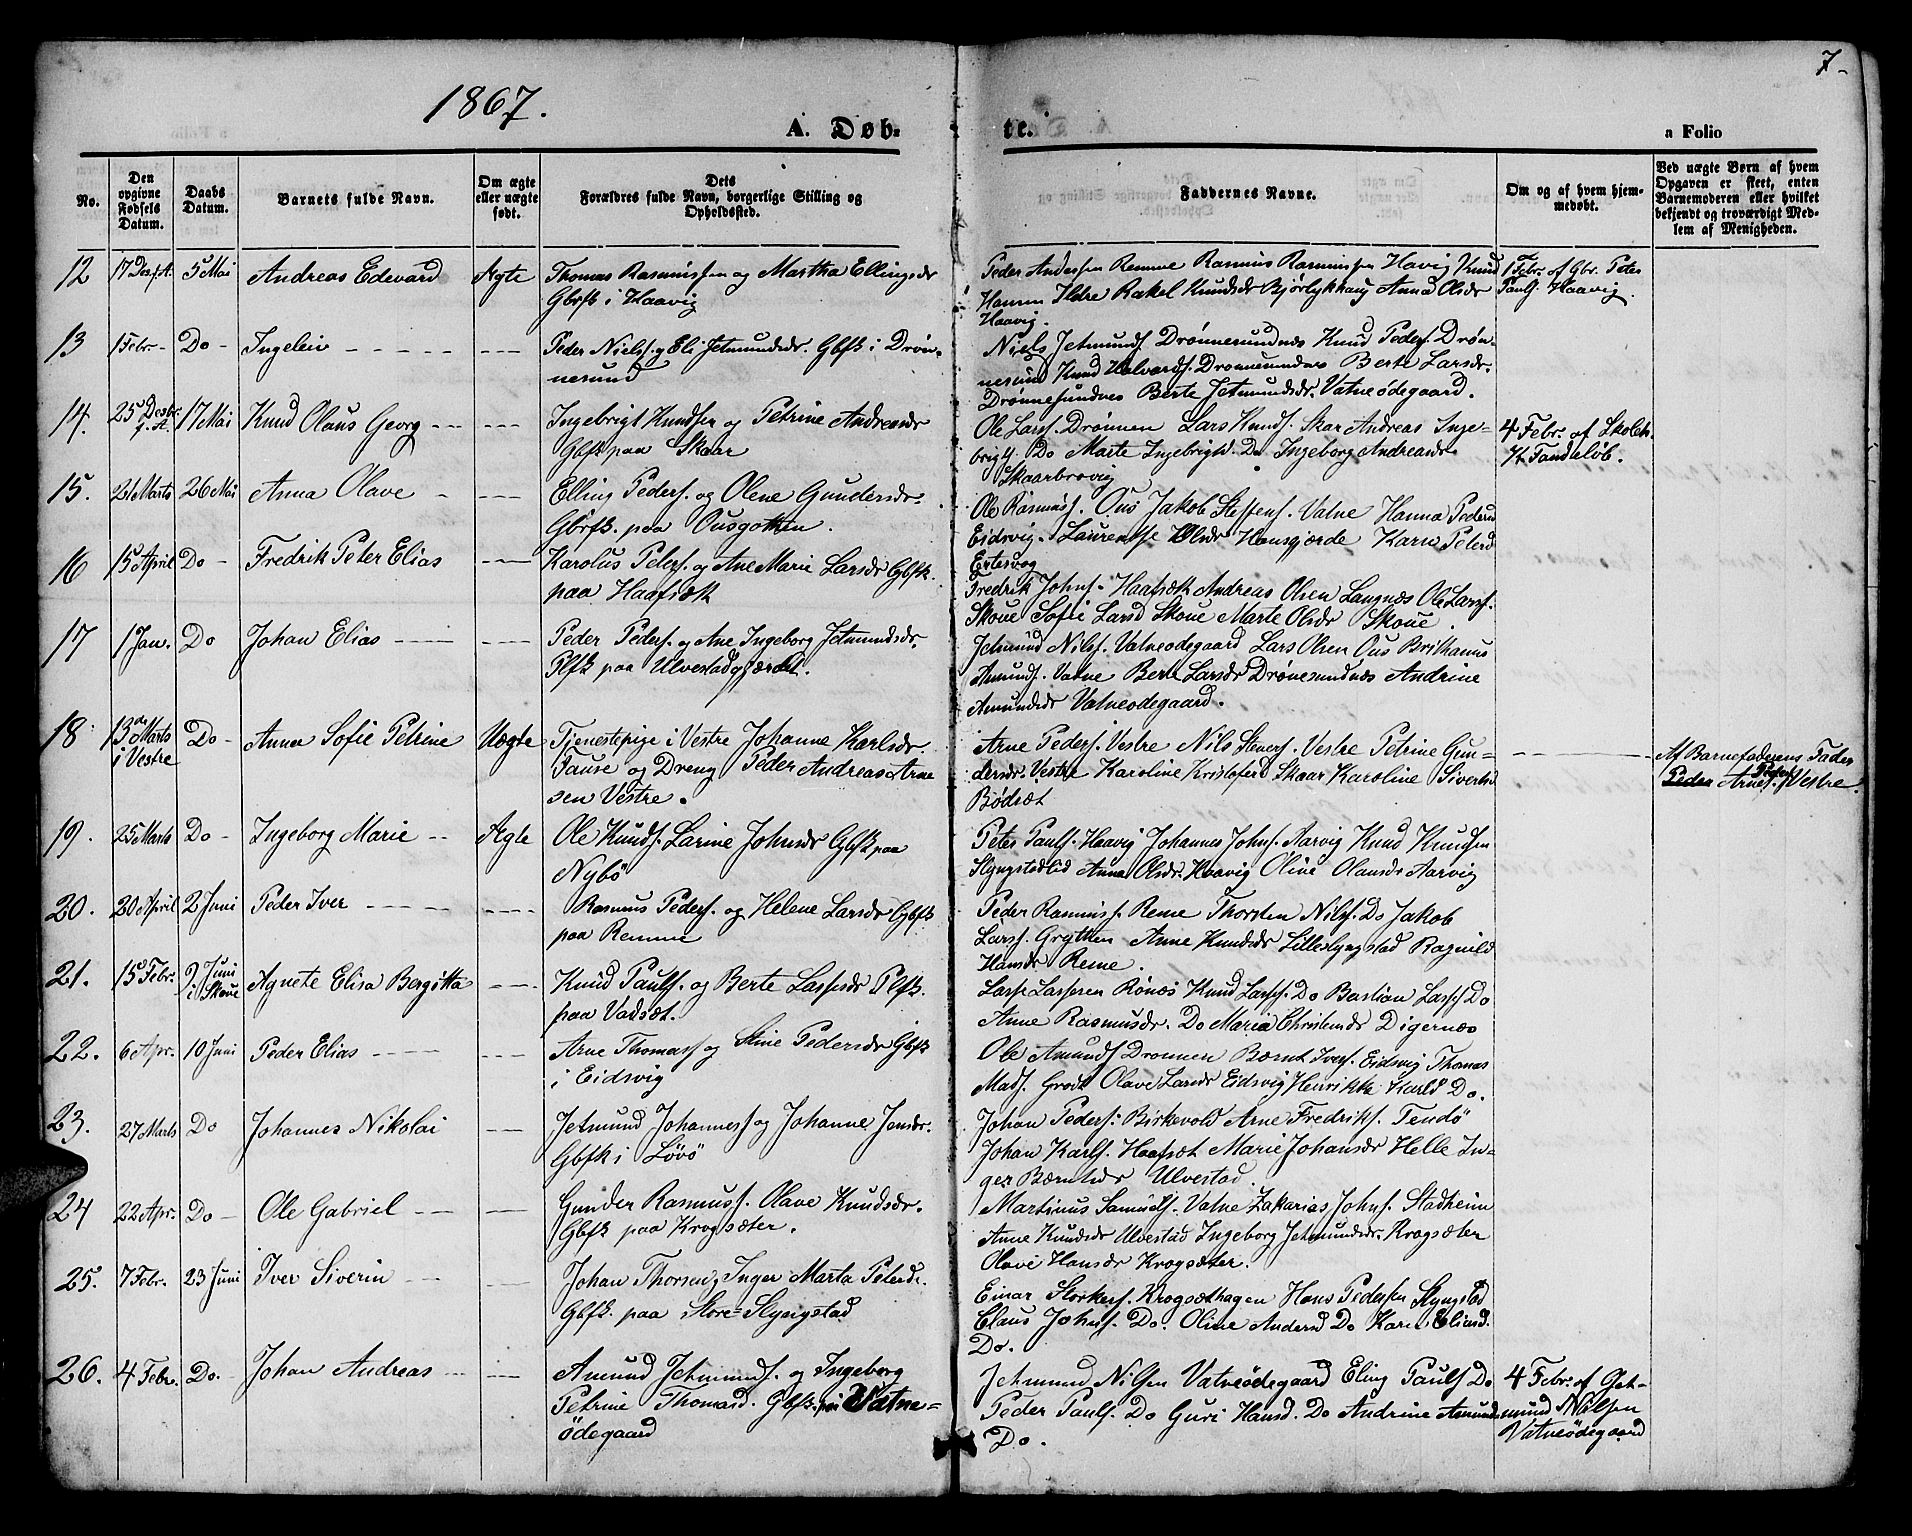 7-
1867.
A. Døb-
te.
a Folio
No.
Den opgivne Fødsels Datum.
Daabs Datum.
Barnets fulde Navn.
Om ægte eller uægte født.
Dets Forældres fulde Navn, borgerlige Stilling og Opholdssted.
Faddernes Navne.
Om og af hvem hjemmedøbt.
Ved uægte Børn af hvem Opgaven er skeet, enten Barnemoderen eller hvilket bekjendt og troværdigt Medlem af Menigheden.
12 17 Des. f.A. 5 Mai Andreas Edevard Ægte Thomas Rasmussen og Martha Ellingsdr
Gbrfk i Haavig
Peder Andersen Remme Rasmus Rasmussen Havig Knud
Hansen Ildre Rakel Knudsdr Bjørlykhaug Anna Olsdr
Haavig.
1 Febr. af Gbr. Peter
Pauls. Haavig.
13 1 Febr. - Do - Ingeleiv - - - - - - - -
Peder Nielss. og Eli Jetmundsdr. Gbfk i Drøn-
nesund
Niels Jetmunds. Drønnesundnes Knud Peders. Drøn-
nesund Knud Halvards. Dronnesundnes Berte Larsdr.
Drønnesundnes Berte Jetmundsdr. Vatneødegaard.
14. 25 Desbr. f.A. 17 Mai Knud Olaus Georg - - - - -
Ingebrigt Knudsen og Petrine Andreasdr
Gbfk paa Skaar
Ole Larss. Drønnen Lars Knuds. Skar Andreas Inge-
brigts. Do Marte Ingebrigtd. Do Ingeborg Andreasdr
Skaarbrovig
4 Febr. af Skoleh.
K. Tandeløb.
15. 21 Marts 26 Mai Anna Olave - - - -
Elling Peders. og Olene Gundersdr.
Gbrfk. paa Ousgotten.
Ole Rasmuss. Ous Jakob Steffens. Vatne Hanna Pedersd
Eidsvig. Laurentse Olsdr Hansgjærde Karn Petersd
Ertesvog
16 15 April Do - Fredrik Peter Elias - - -
Karolus Peters. og Ane Marie Larsdr Gbfk.
paa Haafsæt
Fredrik Johns. Haafsæt Andreas Olsen Langnes Ole Larss.
Skoue Sofie Larsd Skoue Marte Olsdr Skoue.
17 1 Jan. Do Johan Elias - - - - - -
Peder Peders. og Ane Ingeborg Jetmundsdr.
Plfk paa Ulvestadgjærdet.
Jetmund Nilss. Vatneodegaard Lars Olsen Ous Brithanus
Amunds. Vatne Berte Larsdr Drønesundnes Andrine
Amundsdr Vatneodegaard.
18 13de Marts i Vestre Do - Anna Sofie Petrine Uægte
Tjenestepige i Vestre Johanne Karlsdr.
Tause og Dreng Peder Andreas Arne
sen Vestre.
Arne Peders. Vestre Nils Steners. Vestre Petrine Gun-
dersdr. Vestre Karoline Kristoferd Skaar Karoline Sivertsd
Bødsæt
Af Barnefaderens Fader
Peder Arne Peders. Vestre.
19. 25 Marts Do - Ingeborg Marie - - Ægte
Ole Knuds. Larine Johnsdr Gbfk paa
Nybö
Peter Pauls. Haavig Johannes Johns. Aarvig Knud Knudsen
Slyngstadlid Anna Olsdr. Haavig Olive Olausdr Aarvig
20. 20 April 2 Juni Peder Iver - - - - - - - -
Rasmus Peders. og Helene Larsdr Gbfk
paa Remme
Peder Rasmuss. Reme Thorsten Nilss. Do Jakob
Larss. Grytten Anne Knudsdr Lilleslyngstad Ragnild
Hansdr Reme.
21. 15 Febr. 9 Juni i Skoue Agnete Elisa Bergitta - - -
Knud Pauls. og Berte Lassesdr Plfk.
paa Vadsæt.
Lasse Lassesen Rönes Knud Lasses. Do Bastian Lasses. Do
Anne Rasmusdr. Do Maria Christensdr Digernes
22. 6 Apr. 10 Juni Peder Elias - - - - - -
Arne Thomass. og Stine Pedersdr Gbfk
i Eidsvig
Ole Amunds Dronnen Bærnt Ivers. Eidsvig Thomas
Mads. Grodt Olave Larsdr Eidsvig Henrikka Karlsd Do.
23. 27 Marts Do Johannes Nikolai - -
Jetmund Johanness. og Johanne Jonsdr.
Gbfk i Lövö
Johan Peders. Birkevold Arne Fredriks. Tendö
Johan Karls. Haafsæt Marie Johansdr Helle In-
ger Bærntsdr Ulvestad.
24 22 Apr. Do - Ole Gabriel - - - -
Gunder Rasmuss. Olave Knudsdr.
Gbfk paa Krogsæter.
Martinus Samuels. Vatne Zakarias Johns. Stadheim
Anne Knudsdr Ulvestad Ingeborg Jetmundsdr. Krogsæter
Olave Hansdr Krogsæter.
25. 7 Febr. 23 Juni Iver Siverin - - - -
Johan Thorsen, Inger Marta Petersd.
Gbfk. paa Store-Slyngstad
Einar Storkers. Krogsæthagen Hans Pedersen Slyngstad
Claus Johns. Do. Oline Andersd Do Karen Eliasd.
Do.
26. 4 Febr. Do. - Johan Andreas - - - - -
Amund Jetmunds. og Ingeborg
Petrine Thomasd. Gbfk. paa Vatne-
ødegaard
Jetmund Nilsen Vatneödegaard Eling Pauls Do
Peder Pauls. Do Guri Hansd. Do Andrine Amunds
Do.
4 Febr. af Get-
mund Nilsen
Vatneödegaard